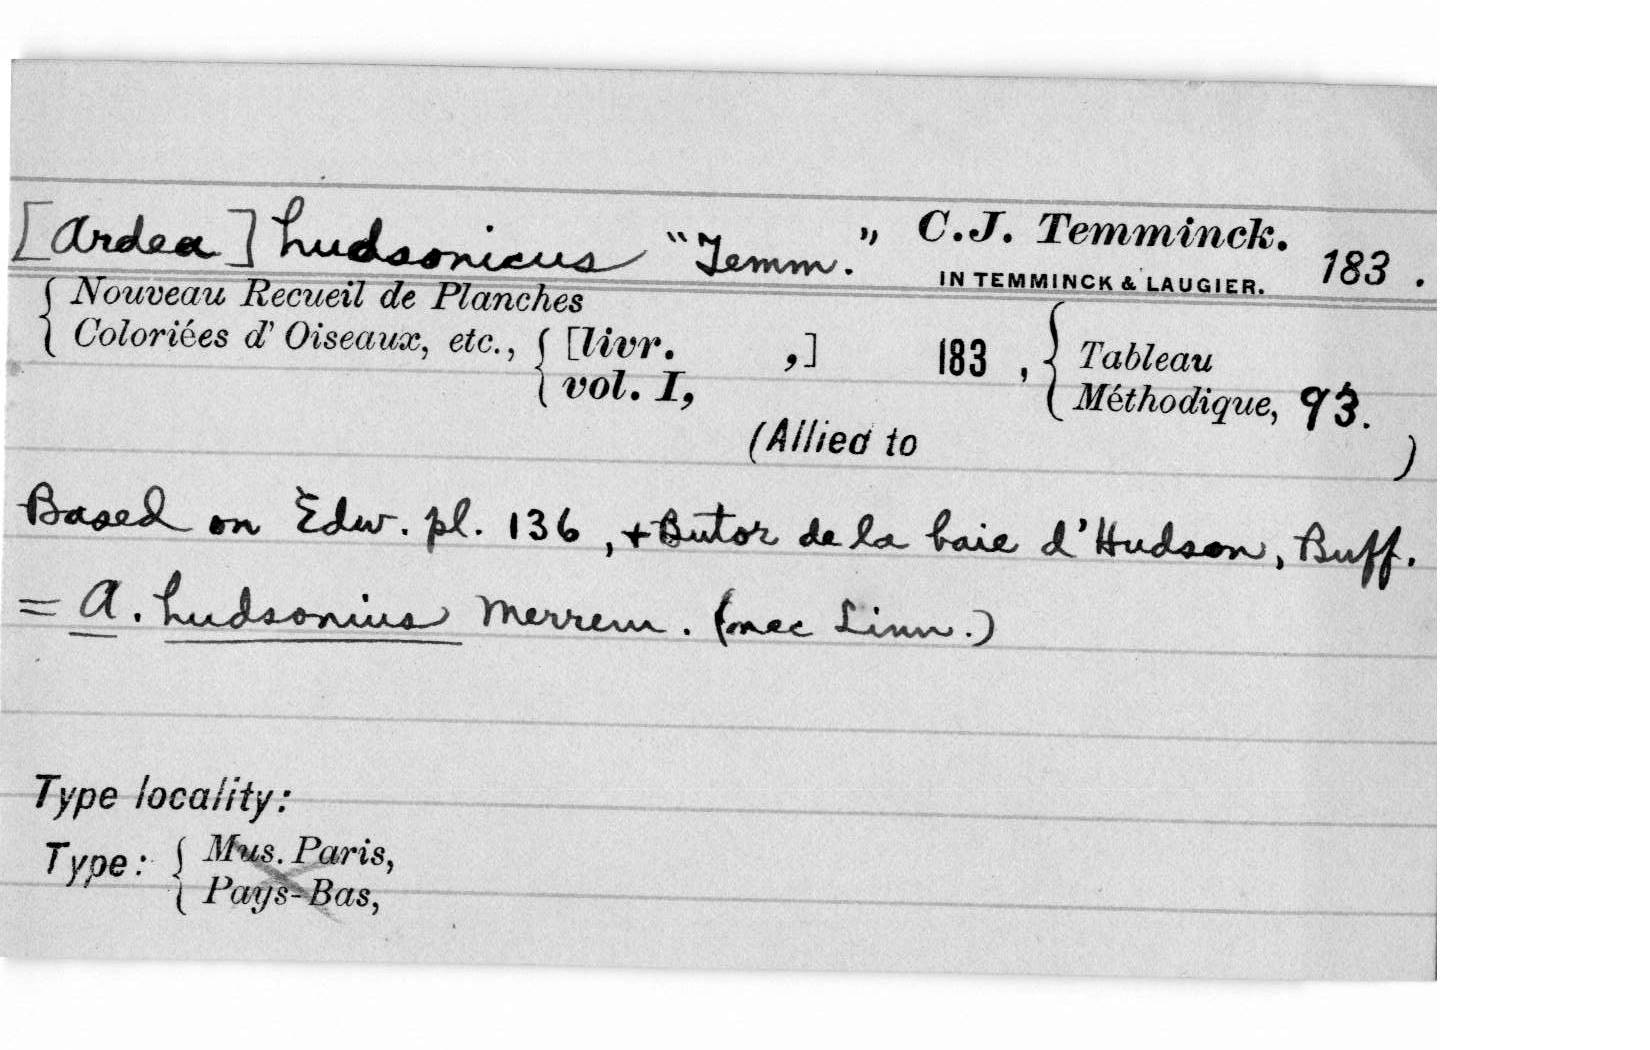 [Ardea] hudsonicus "Temm." C.J. Temminck.
IN TEMMINCK & LAUGIER. 183 .
{ Nouveau Recueil de Planches
Coloriées d' Oiseaux, etc., { [livr. ,] 183 , { Tableau
vol. I, Méthodique, 93.
(Allied to )
Based on Edw. pl. 136, + Butor de la baie d'Hudson, Buff.
= A. hudsonius Merrem. (nec Linn.)
Type locality:
Type: { Mus. Paris,
Pays-Bas,